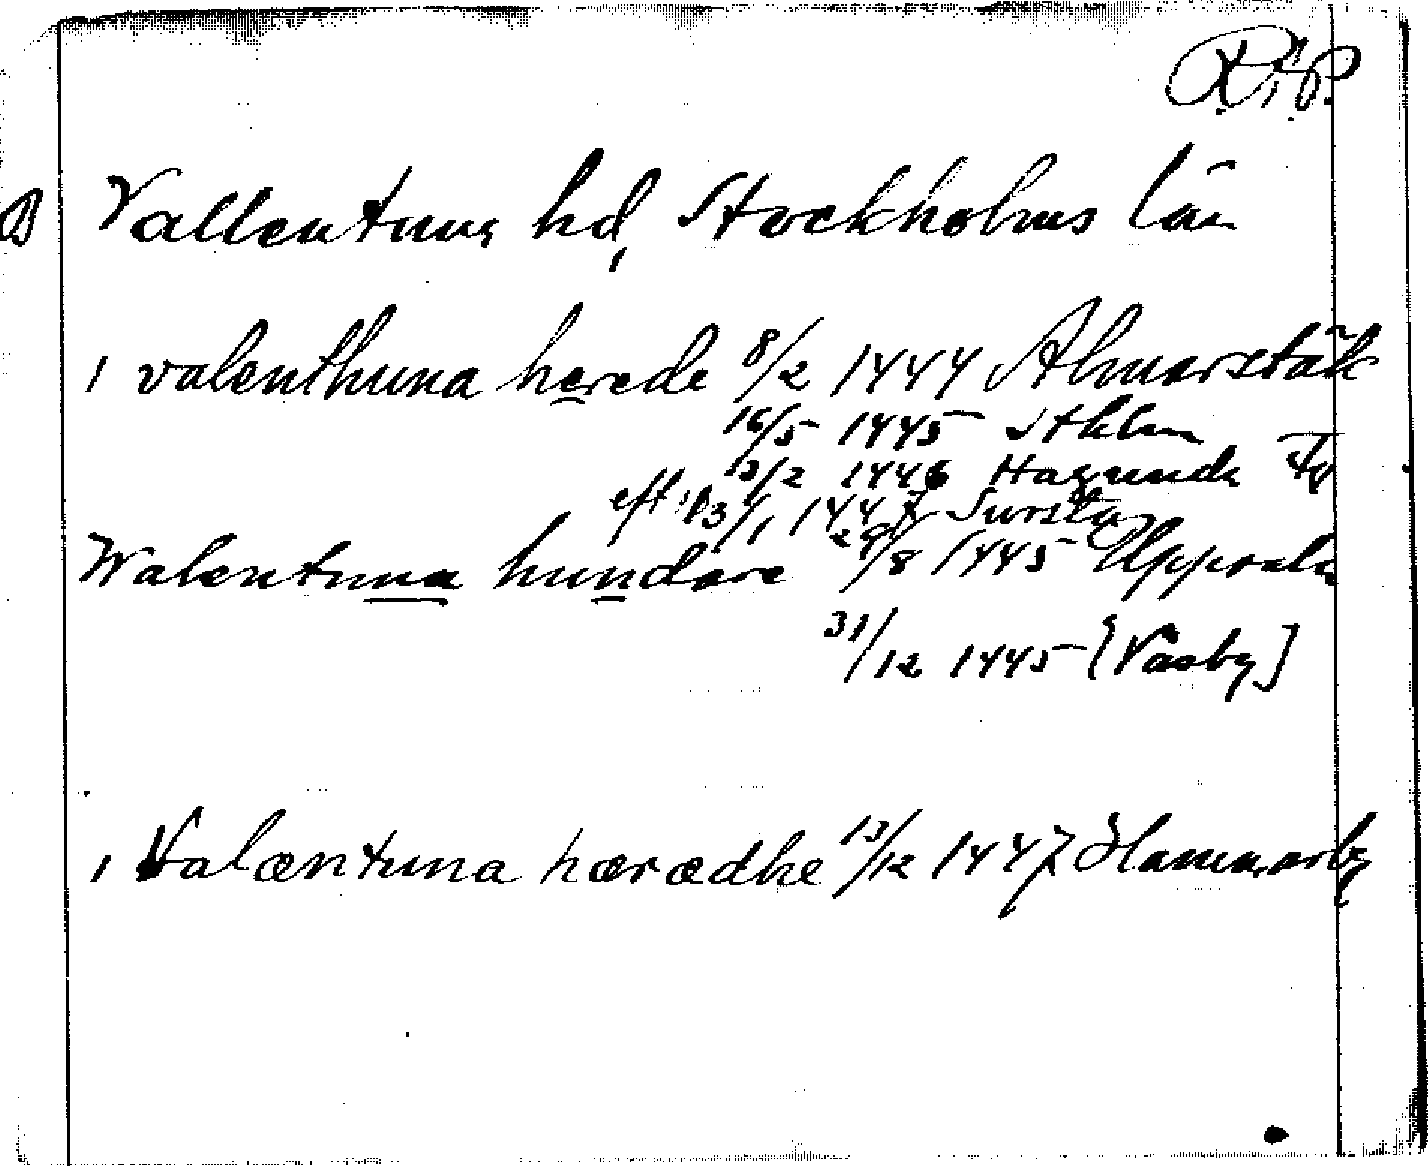 R.A.P.
Vallentuna hd, Stockholms län
i valenthuna herede 8/2 1444 Almarstäk
16/5 1445 Sthlm
13/2 1446 Hagunda
eft. 1/1 1447 Swista
Walentuna hundare 29/8 1445 Uppsala
31/12 1445 [Vasby]
i Valæntuna hærædhe 13/12 1447 Hammarby